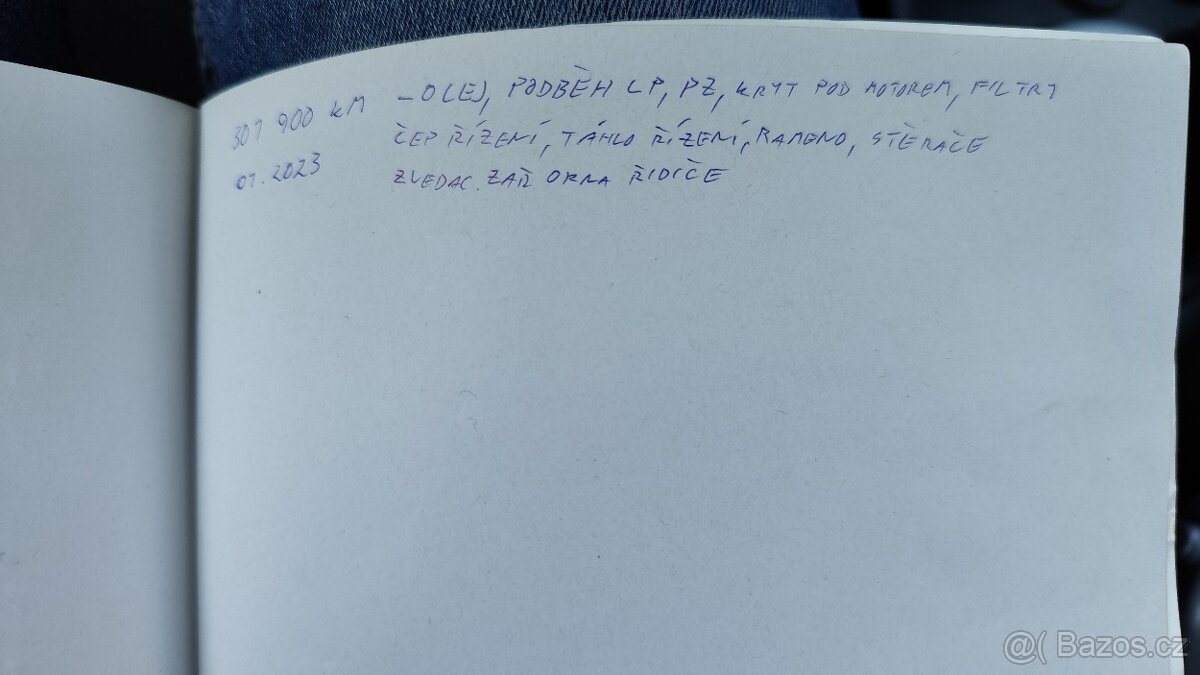 307 900 KM - OLEJ, PODBĚH LP, PZ, KRYT POD MOTOREM, FILTRY
07.2023 ČEP ŘÍZENÍ, TÁHLO ŘÍZENÍ, RAMENO, STĚRAČE
ZVEDAC. ZAŘ OKNA ŘIDIČE
@( Bazos.cz